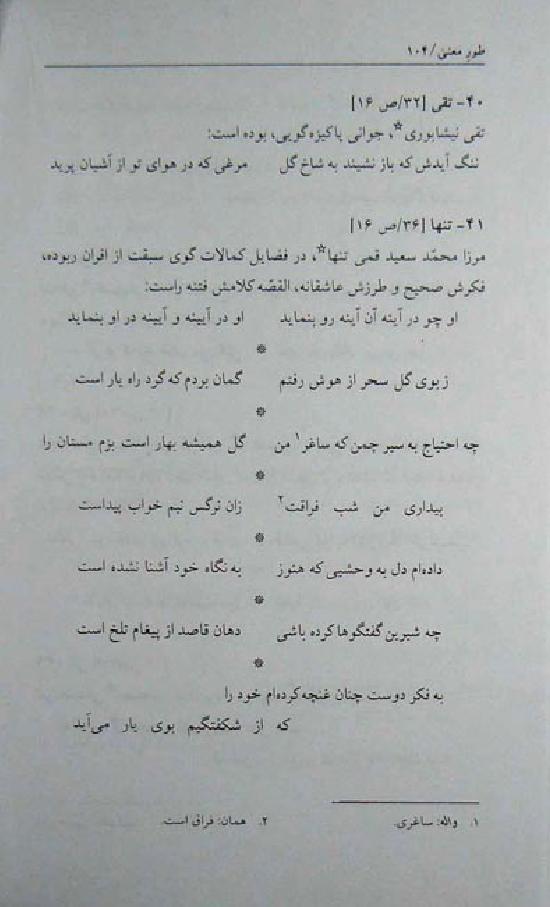 طور معنی / ۱۰۴
۴۰- تقی [۳۲/ص ۱۶]
تقی نیشابوری*، جوانی پاکیزه‌گویی، بوده است:
ننگ آیدش که باز نشیند به شاخ گل مرغی که در هوای تو از آشیان پرید
۴۱- تنها [۳۶/ص ۱۶]
مرزا محمّد سعید قمی تنها*، در فضایل کمالات گوی سبقت از اقران ربوده،
فکرش صحیح و طرزش عاشقانه، القصّه کلامش فتنه راست:
او چو در آینه آن آینه رو بنماید او در آیینه و آیینه در او بنماید
*
ز بوی گل سحر از هوش رفتم گمان بردم که گرد راه یار است
*
چه احتیاج به سیر چمن که ساغر۱ من گل همیشه بهار است بزم مستان را
*
بیداری من شب فراقت۲ زان نرگس نیم خواب پیداست
*
داده‌ام دل به وحشیی که هنوز به نگاه خود آشنا نشده است
*
چه شیرین گفتگوها کرده باشی دهان قاصد از پیغام تلخ است
*
به فکر دوست چنان غنچه کرده‌ام خود را
که از شکفتگیم بوی یار می‌آید
۱. واله: ساغری. ۲. همان: فراق است.